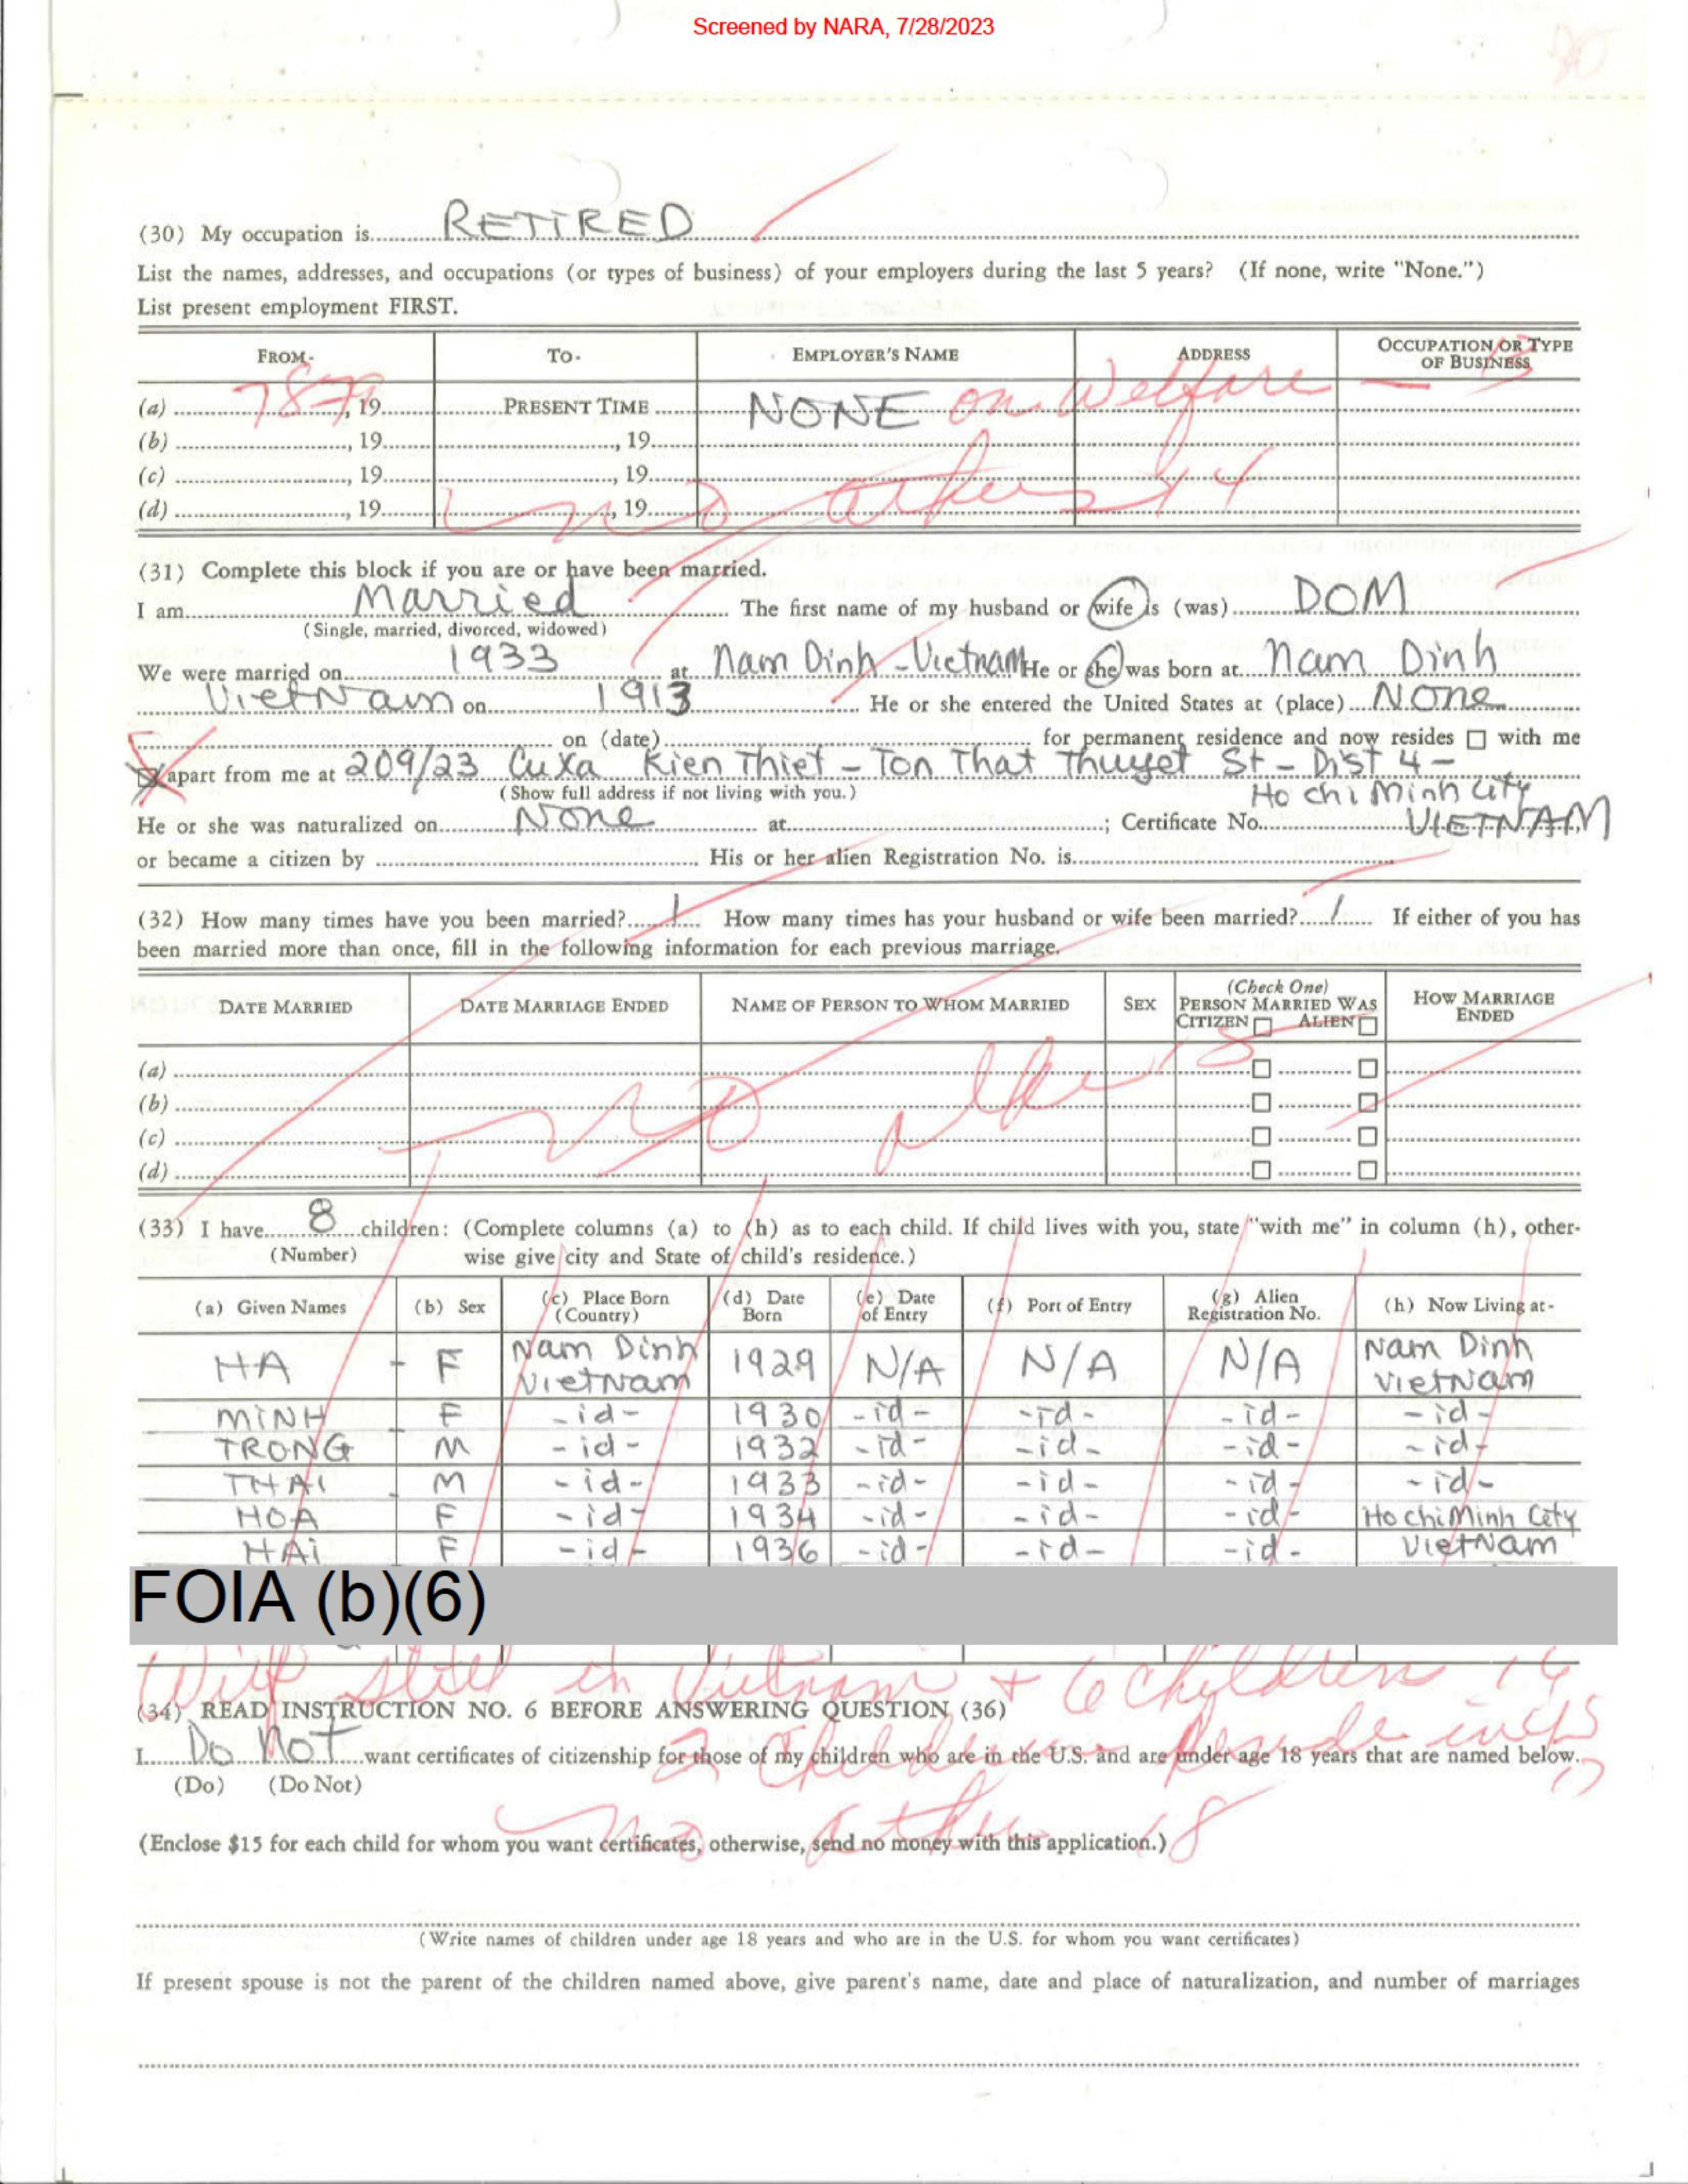 Screened by NARA, 7/28/2023
(30) My occupation is RETIRED
List the names, addresses, and occupations (or types of business) of your employers during the last 5 years? (If none, write "None.")
List present employment FIRST.
FROM- TO- EMPLOYER'S NAME ADDRESS OCCUPATION OR TYPE OF BUSINESS
(a) , 19 PRESENT TIME NONE on Welfare — 13
(b) , 19 , 19
(c) , 19 , 19
(d) , 19 , 19
no others 14
(31) Complete this block if you are or have been married.
I am Married The first name of my husband or wife is (was) DOM
(Single, married, divorced, widowed)
We were married on 1933 at Nam Dinh - Vietnam He or she was born at Nam Dinh
VietNam on 1913 He or she entered the United States at (place) None
on (date) for permanent residence and now resides ☐ with me
☒ apart from me at 209/23 Cuxa Kien Thiet - Ton That Thuyet St - Dist 4 -
(Show full address if not living with you.) Ho chi Minh city
He or she was naturalized on None at ; Certificate No. VIETNAM
or became a citizen by His or her alien Registration No. is
(32) How many times have you been married? 1 How many times has your husband or wife been married? 1 If either of you has
been married more than once, fill in the following information for each previous marriage.
DATE MARRIED DATE MARRIAGE ENDED NAME OF PERSON TO WHOM MARRIED SEX (Check One) PERSON MARRIED WAS CITIZEN ☐ ALIEN ☐ HOW MARRIAGE ENDED
(a) ☐ ☐
(b) ☐ ☐
(c) ☐ ☐
(d) ☐ ☐
no 15
(33) I have 8 children: (Complete columns (a) to (h) as to each child. If child lives with you, state "with me" in column (h), other-
(Number) wise give city and State of child's residence.)
(a) Given Names (b) Sex (c) Place Born (Country) (d) Date Born (e) Date of Entry (f) Port of Entry (g) Alien Registration No. (h) Now Living at-
HA F Nam Dinh VietNam 1929 N/A N/A N/A Nam Dinh VietNam
MINH F -id- 1930 -id- -id- -id- -id-
TRONG M -id- 1932 -id- -id- -id- -id-
THAI M -id- 1933 -id- -id- -id- -id-
HOA F -id- 1934 -id- -id- -id- Ho chi Minh City
HAi F -id- 1936 -id- -id- -id- VietNam
FOIA (b)(6)
Wife still in Vietnam + 6 Children 16
(34) READ INSTRUCTION NO. 6 BEFORE ANSWERING QUESTION (36)
I Do Not want certificates of citizenship for those of my children who are in the U.S. and are under age 18 years that are named below.
2 Children Reside in US 17
(Do) (Do Not)
no other 18
(Enclose $15 for each child for whom you want certificates, otherwise, send no money with this application.)
(Write names of children under age 18 years and who are in the U.S. for whom you want certificates)
If present spouse is not the parent of the children named above, give parent's name, date and place of naturalization, and number of marriages